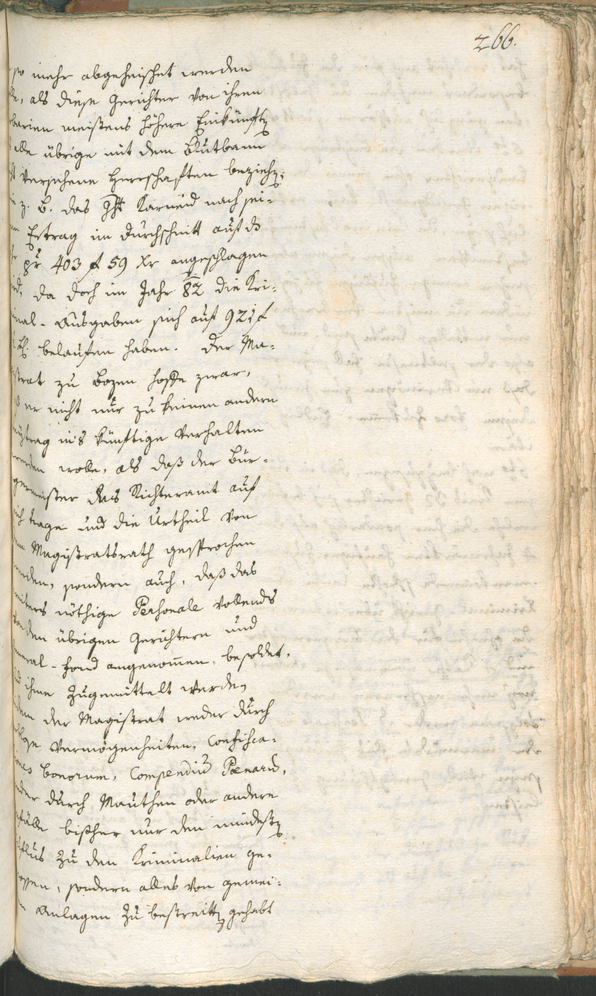 266.
so mehr abgeheischet werden
als diese Gerichter von ihren
barien meistens höhere Einkünften
alle übrige mit dem Blutbann
versehene Herrschaften beziehen,
z. B. das Ght Karneid nach sei-
Ertrag im Durchschnitt auf d
pr 403 f 59 Xr angeschlagen
da doch im Jahr 82 die Kri-
nal-Ausgaben sich auf 921 f
belaufen haben. Der Ma-
strat zu Bozen hoffe zwar,
er nicht nur zu keinen andern
ytrag in's künftige verhalten
werden wolle, als daß der Bür-
germeister das Richteramt auf
sich trage und die Urtheil von
Magistratsrath gesprochen
werden, sondern auch, daß das
nöthige Personale vollends
den übrigen Gerichtern und
eral-Fond angenommen, besoldet,
ihme zugemittelt werden,
dem der Magistrat weder durch
Vermögenheiten, Confisca-
nes bonorum, Compendiũ Pœnarũ,
oder durch Mauthen oder andere
fälle bisher nur den mindesten
fluß zu den Kriminalien ge-
nossen, sondern alles von gemei-
Anlagen zu bestreitten gehabt